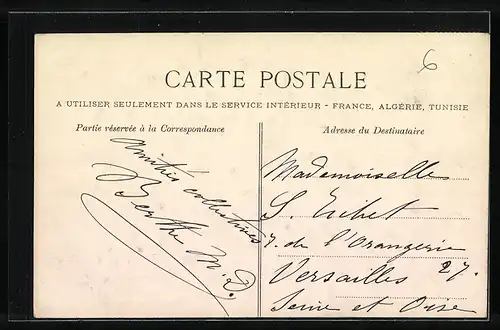 6
CARTE POSTALE
A UTILISER SEULEMENT DANS LE SERVICE INTÉRIEUR - FRANCE, ALGÉRIE, TUNISIE
Partie réservée à la Correspondance
Adresse du Destinataire
Amitiés collectives
Berthe M. D.
Mademoiselle
S.
7. de l'Orangerie
Versailles 27.
Seine et Oise